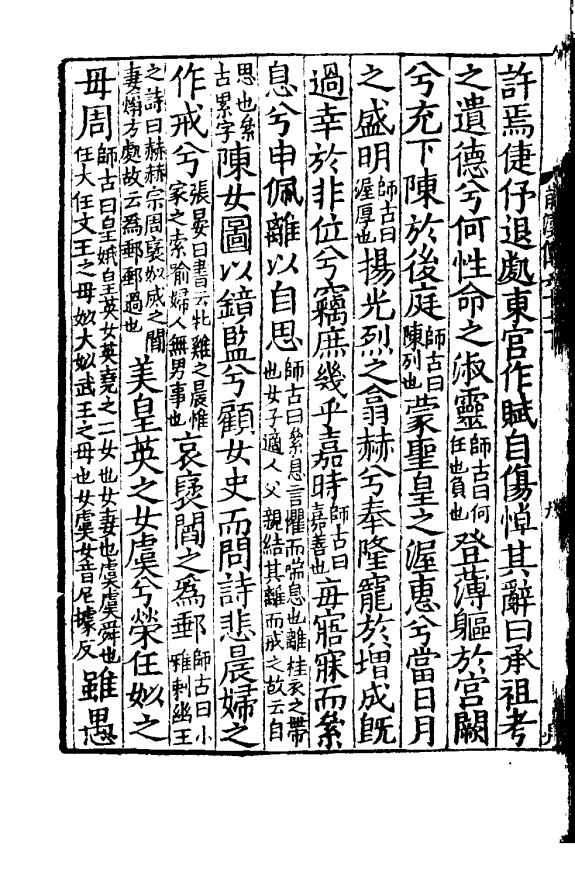 許焉倢伃退處東宮作賦自傷悼其辭曰承祖考
之遺德兮何性命之淑靈師古曰何任也負也登薄軀於宮闕
兮充下陳於後庭師古曰陳列也蒙聖皇之渥惠兮當日月
之盛明師古曰渥厚也揚光烈之翕赫兮奉隆寵於增成既
過幸於非位兮竊庶幾乎嘉時師古曰嘉善也毎寤寐而絫
息兮申佩離以自思師古曰絫息言懼而喘息也離桂衣之帶也女子適人父親結其離而戒之故云自
思也絫古累字陳女圖以鏡監兮顧女史而問詩悲晨婦之
作戒兮張晏曰書云牝雞之晨惟家之索喻婦人無男事也哀襃閻之爲郵師古曰小雅刺幽王
之詩曰赫赫宗周襃姒威之閻妻煽方處故云爲郵郵過也美皇英之女虞兮榮任姒之
母周師古曰皇娥皇英女英堯之二女也女妻也虞虞舜也任大任文王之母姒大姒武王之母也女虞女音尼據反雖愚